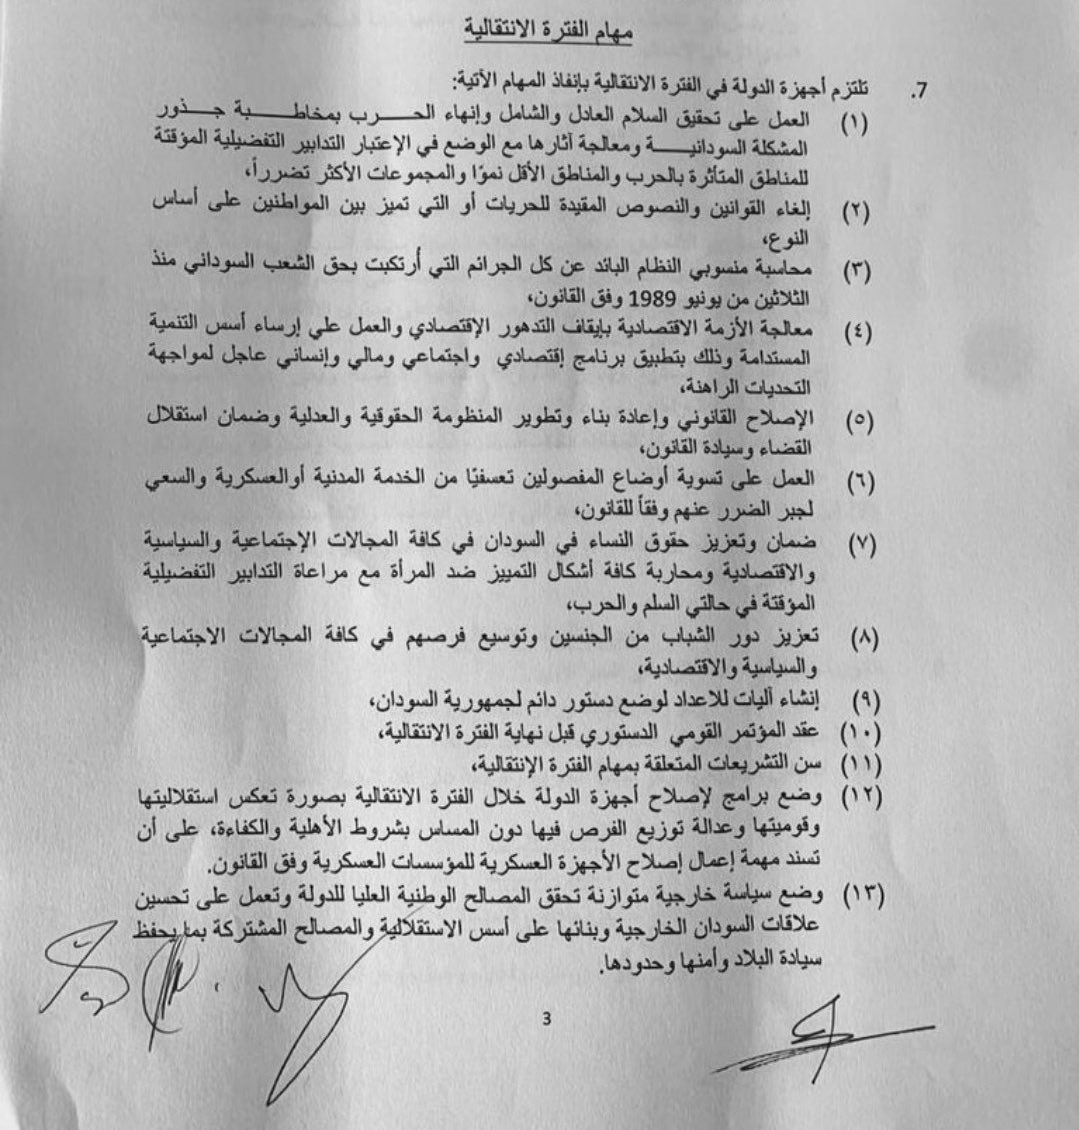 مهام الفترة الانتقالية
7. تلتزم أجهزة الدولة في الفترة الانتقالية بإنفاذ المهام الآتية:
(١) العمل على تحقيق السلام العادل والشامل وإنهاء الحرب بمخاطبة جذور
المشكلة السودانية ومعالجة آثارها مع الوضع في الإعتبار التدابير التفضيلية المؤقتة
للمناطق المتأثرة بالحرب والمناطق الأقل نموًا والمجموعات الأكثر تضرراً،
(٢) إلغاء القوانين والنصوص المقيدة للحريات أو التي تميز بين المواطنين على أساس
النوع،
(٣) محاسبة منسوبي النظام البائد عن كل الجرائم التي أُرتكبت بحق الشعب السوداني منذ
الثلاثين من يونيو 1989 وفق القانون،
(٤) معالجة الأزمة الاقتصادية بإيقاف التدهور الإقتصادي والعمل علي إرساء أسس التنمية
المستدامة وذلك بتطبيق برنامج إقتصادي واجتماعي ومالي وإنساني عاجل لمواجهة
التحديات الراهنة،
(٥) الإصلاح القانوني وإعادة بناء وتطوير المنظومة الحقوقية والعدلية وضمان استقلال
القضاء وسيادة القانون،
(٦) العمل على تسوية أوضاع المفصولين تعسفيًا من الخدمة المدنية أوالعسكرية والسعي
لجبر الضرر عنهم وفقاً للقانون،
(٧) ضمان وتعزيز حقوق النساء في السودان في كافة المجالات الإجتماعية والسياسية
والاقتصادية ومحاربة كافة أشكال التمييز ضد المرأة مع مراعاة التدابير التفضيلية
المؤقتة في حالتي السلم والحرب،
(٨) تعزيز دور الشباب من الجنسين وتوسيع فرصهم في كافة المجالات الاجتماعية
والسياسية والاقتصادية،
(٩) إنشاء آليات للاعداد لوضع دستور دائم لجمهورية السودان،
(١٠) عقد المؤتمر القومي الدستوري قبل نهاية الفترة الانتقالية،
(١١) سن التشريعات المتعلقة بمهام الفترة الإنتقالية،
(١٢) وضع برامج لإصلاح أجهزة الدولة خلال الفترة الانتقالية بصورة تعكس استقلاليتها
وقوميتها وعدالة توزيع الفرص فيها دون المساس بشروط الأهلية والكفاءة، على أن
تسند مهمة إعمال إصلاح الأجهزة العسكرية للمؤسسات العسكرية وفق القانون.
(١٣) وضع سياسة خارجية متوازنة تحقق المصالح الوطنية العليا للدولة وتعمل على تحسين
علاقات السودان الخارجية وبنائها على أسس الاستقلالية والمصالح المشتركة بما يحفظ
سيادة البلاد وأمنها وحدودها.
3